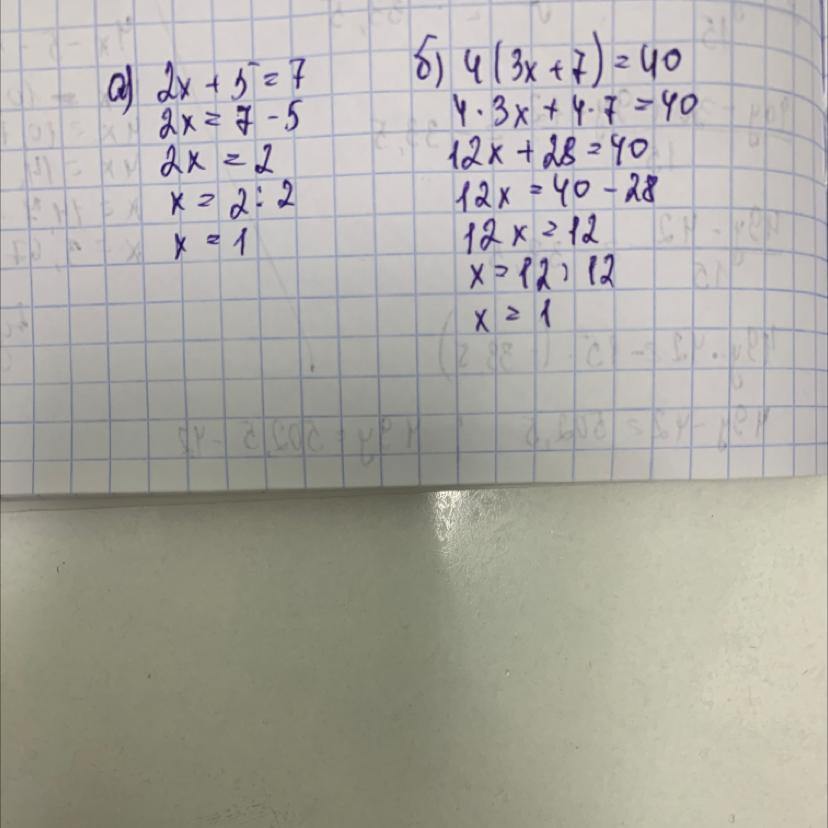 а) 2x + 5 = 7
2x = 7 - 5
2x = 2
x = 2 : 2
x = 1
б) 4 (3x + 7) = 40
4 · 3x + 4 · 7 = 40
12x + 28 = 40
12x = 40 - 28
12x = 12
x = 12 : 12
x = 1